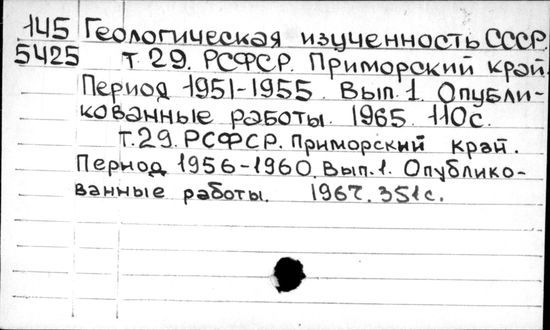 145 Геологическая изученность СССР.
5425 т. 29. РСФСР. Приморский край.
Период 1951-1955. Вып. 1. Опубли-
кованные работы. 1965. 110с.
т. 29. РСФСР. Приморский край.
Период 1956-1960. Вып. 1. Опублико-
ванные работы. 1967. 351с.